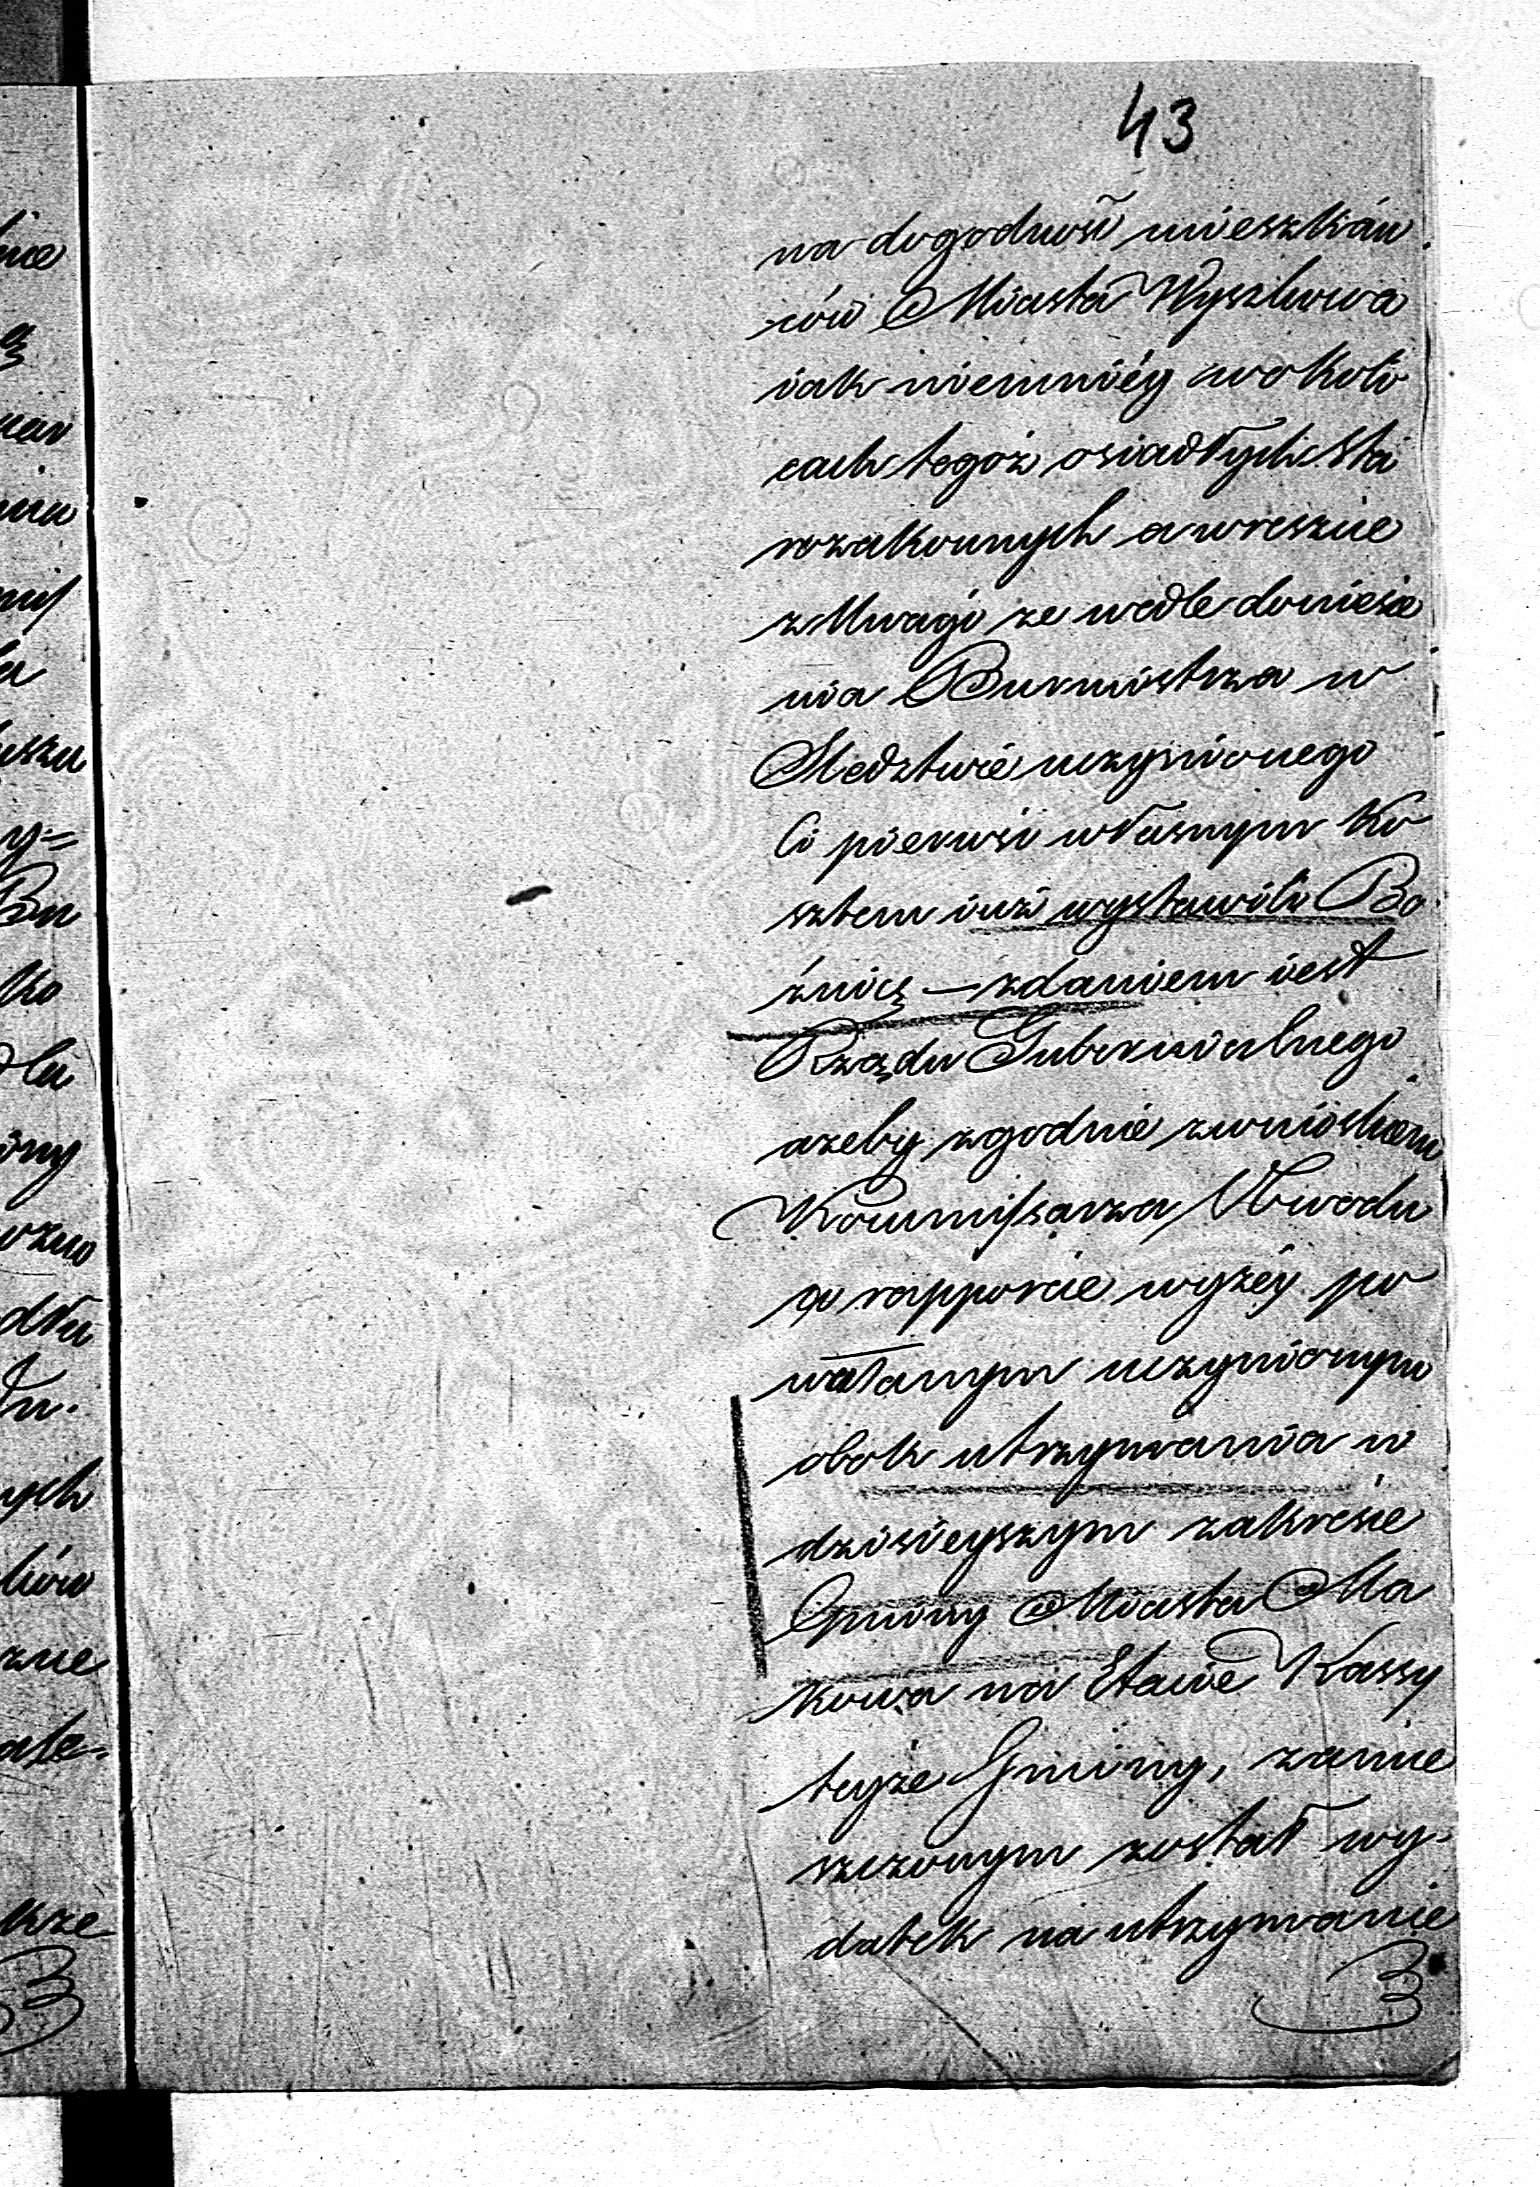 43
na dogodność mieszkań
ców Miasta Wyszkowa
iak niemniéy w okoli
cach tegoż osiadłych Sta
rozakonnych a wreszcie
z Uwagi że wedle doniesie
nia Burmistrza w
Śledztwie uczynionego
Ci pierwsi własnym Ko
sztem iuż wystawili Bo
źnicę — zdaniem iest
Rządu Gubernialnego
ażeby zgodnie z wnioskiem
Kommissarza Obwodu
w rapporcie wyżéy po
wołanym uczynionym
obok utrzymania w
dzisieyszym zakresie
Gminy Miasta Ma
kowa na Etacie Kassy
teyże Gminy, zamie
szczonym został wy-
datek na utrzymanie